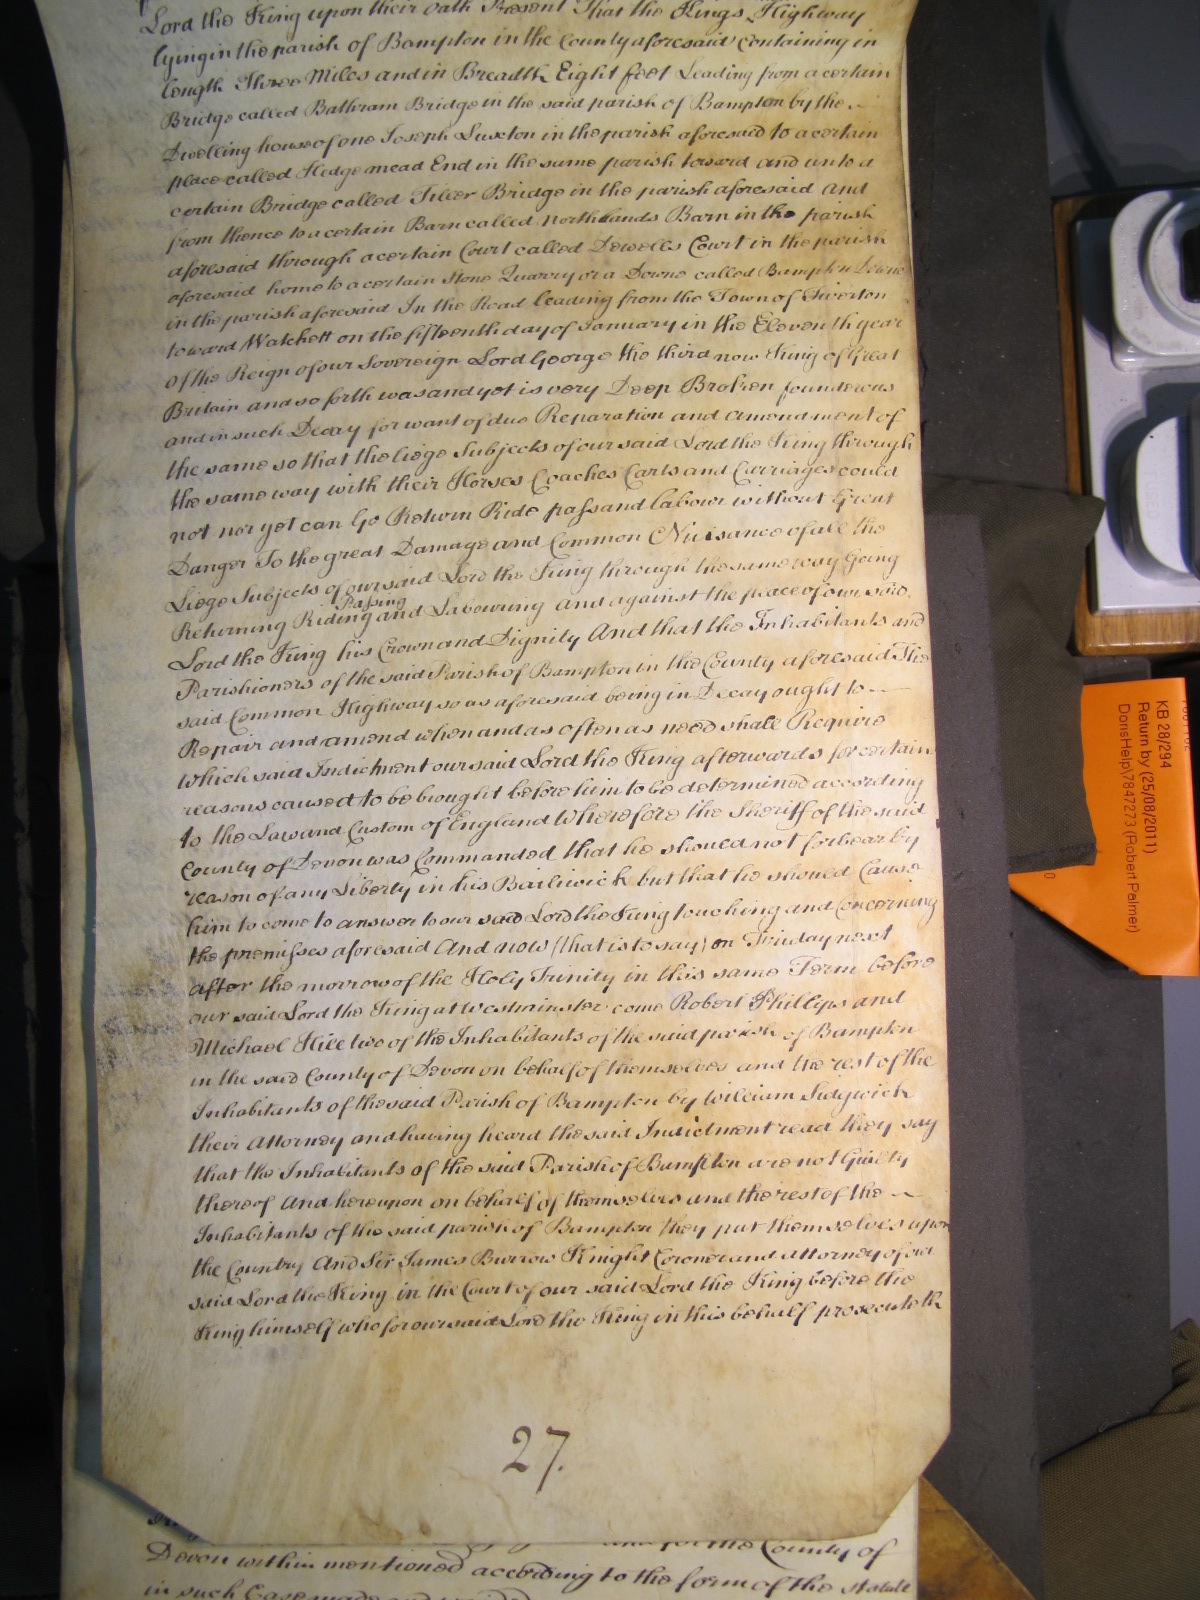 Lord the King upon their Oath Present That the Kings Highway
lying in the parish of Bampton in the County aforesaid Containing in
length Three Miles and in Breadth Eight feet Leading from a certain
Bridge called Bathram Bridge in the said parish of Bampton by the
Dwelling house of one Joseph Luxton in the parish aforesaid to a certain
place called Hedge mead End in the same parish toward and unto a
certain Bridge called Tiller Bridge in the parish aforesaid And
from thence to a certain Barn called Northlands Barn in the parish
aforesaid through a certain Court called Dewells Court in the parish
aforesaid home to a certain Stone Quarry or a Downe called Bampton Downe
in the parish aforesaid In the Road leading from the Town of Tiverton
toward Watchett on the fifteenth day of January in the Eleventh year
of the Reign of our Sovereign Lord George the third now King of Great
Britain and so forth was and yet is very Deep Broken founderous
and in such Decay for want of due Reparation and Amendment of
the same so that the liege Subjects of our said Lord the King through
the same way with their Horses Coaches Carts and Carriages could
not nor yet can Go Return Ride pass and labour without Great
Danger To the great Damage and Common Nuisance of all the
Liege Subjects of our said Lord the King through the same way Going
Returning Riding Passing and Labouring And against the peace of our said
Lord the King his Crown and Dignity And that the Inhabitants and
Parishioners of the said Parish of Bampton in the County aforesaid The
said Common Highway so as aforesaid being in Decay ought to
Repair and amend when and as often as need shall Require
Which said Indictment our said Lord the King afterwards for certain
reasons caused to be brought before him to be determined according
to the Law and Custom of England Wherefore the Sheriff of the said
County of Devon was Commanded that he should not forbear by
reason of any Liberty in his Bailiwick but that he should Cause
him to come to answer to our said Lord the King touching and concerning
the premisses aforesaid And now (that is to say) on Friday next
after the morrow of the Holy Trinity in this same Term before
our said Lord the King at Westminster come Robert Phillips and
Michael Hill two of the Inhabitants of the said parish of Bampton
in the said County of Devon on behalf of themselves and the rest of the
Inhabitants of the said Parish of Bampton by William Sidgwick
their Attorney and having heard the said Indictment read they say
that the Inhabitants of the said Parish of Bampton are not Guilty
thereof And hereupon on behalf of themselves and the rest of the
Inhabitants of the said parish of Bampton they put themselves upon
the Country And Sir James Burrow Knight Coroner and Attorney of our
said Lord the King in the Court of our said Lord the King before the
King himself who for our said Lord the King in this behalf prosecuteth
27.
and for the County of
Devon within mentioned according to the form of the statute
in such Case made and
KB 28/294
Return by (25/08/2011)
DorisHelp\7847273 (Robert Palmer)